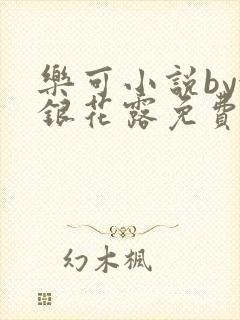 樂可小説by
銀花露免費
幻木楓